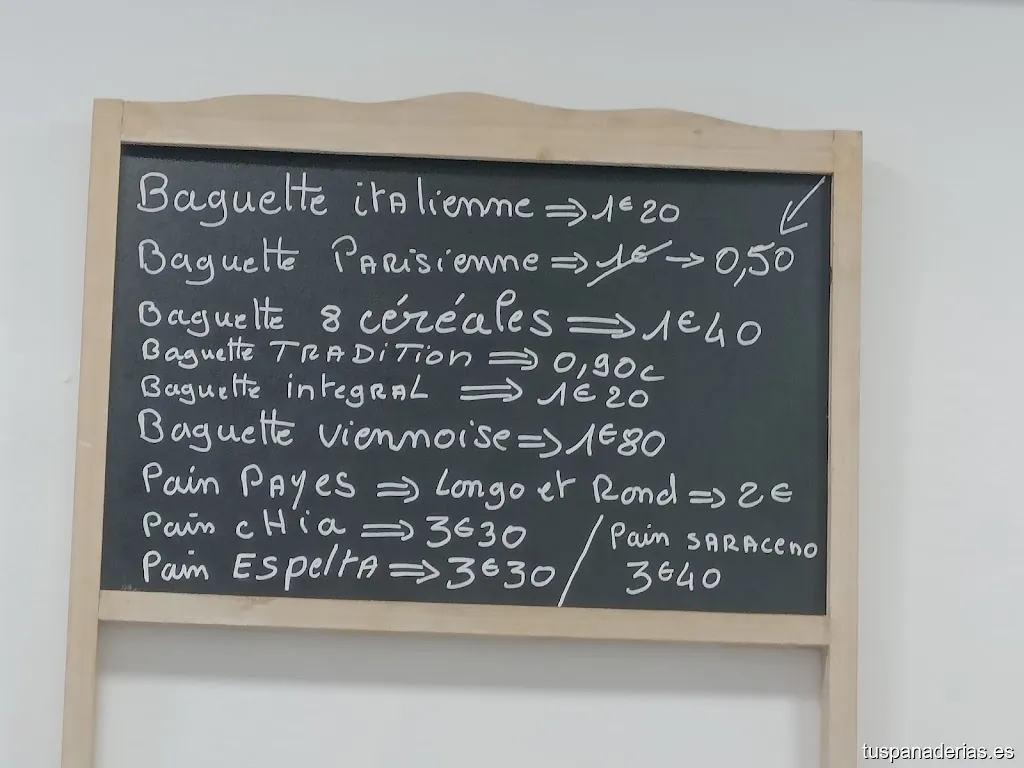 Baguette italienne ⇒ 1€20
Baguette Parisienne ⇒ 1€ → 0,50
Baguette 8 céréales ⇒ 1€40
Baguette TRADITION ⇒ 0,90c
Baguette integRAL ⇒ 1€20
Baguette viennoise ⇒ 1€80
Pain PAYES ⇒ Longo et Rond ⇒ 2€
Pain cHia ⇒ 3€30
Pain ESpeltA ⇒ 3€30 / Pain SARACENO
3€40
tuspanaderias.es